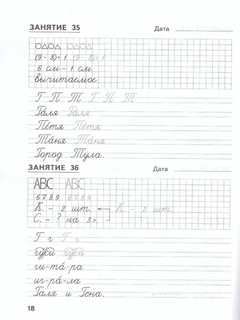 ЗАНЯТИЕ 35 Дата
(9 - 8) + 1 (9 - 8) + 1
6 см - 1 см
вычитаемое
Г П Т Г П Т
Галя Галя
Пётя Пётя
Таня Таня
Город Тула.
ЗАНЯТИЕ 36 Дата
АВС АВС
6789 6789
К. - 2 шт. К - 2 шт.
С. - ? на 3
Г г Г г
гуси гуси
ги-та-ра
иг-ра-ла
Галя и Гена.
18